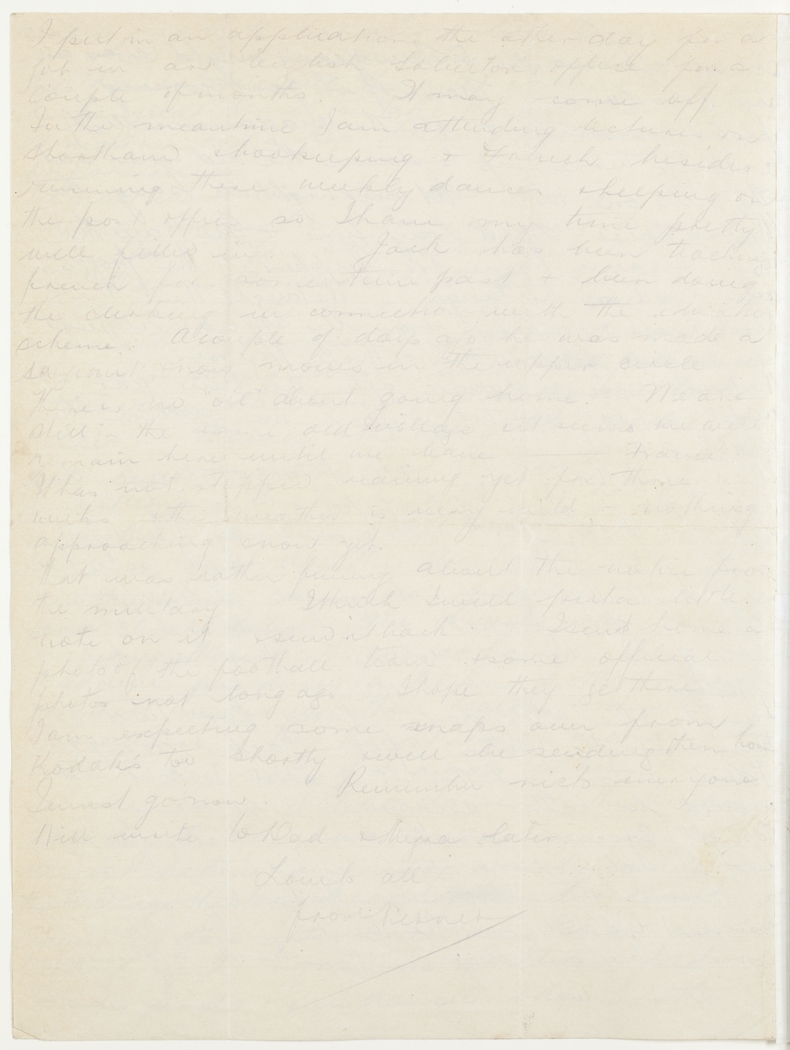 I put in an application the other day for a
job in an English Solicitors office for a
couple of months. It may come off.
In the meantime I am attending lectures on
Shorthand, bookkeeping & French besides
running these weekly dances & keeping on
the post office so I have my time pretty
well filled in. Jack has been teaching
french for some time past & been doing
the clerking in connection with the
scheme. A couple of days ago he was made a
& now moves in the upper circle
There is no "oil" about going home. We are
still in the same old village & it seems we will
remain here until we leave France
It has not stopped raining yet for three
weeks & the weather is very mild - nothing
approaching snow yet.
That was rather funny about the notice from
the military. I think I will for a little
note on it & send it back. I sent home a
photo of the football team & some official
photos not long ago I hope they get there
I am expecting some snaps over from
Kodaks too shortly & will be sending them home
I must go now. Remember me to everyone
Will write to Dad & later.
Love to all
from